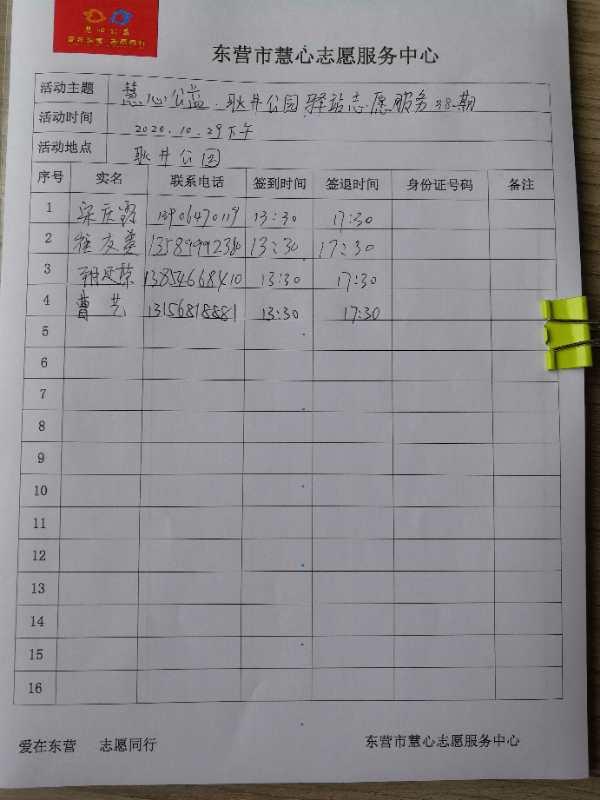 慧心公益
爱在东营 志愿同行
东营市慧心志愿服务中心
活动主题 慧心公益.耿井公园驿站志愿服务38期
活动时间 2020.10.29下午
活动地点 耿井公园
序号 实名 联系电话 签到时间 签退时间 身份证号码 备注
1 13906470119 13:30 17:30
2 13589992380 13:30 17:30
3 13854668410 13:30 17:30
4 曹艺 13156818881 13:30 17:30
5
6
7
8
9
10
11
12
13
14
15
16
爱在东营 志愿同行 东营市慧心志愿服务中心